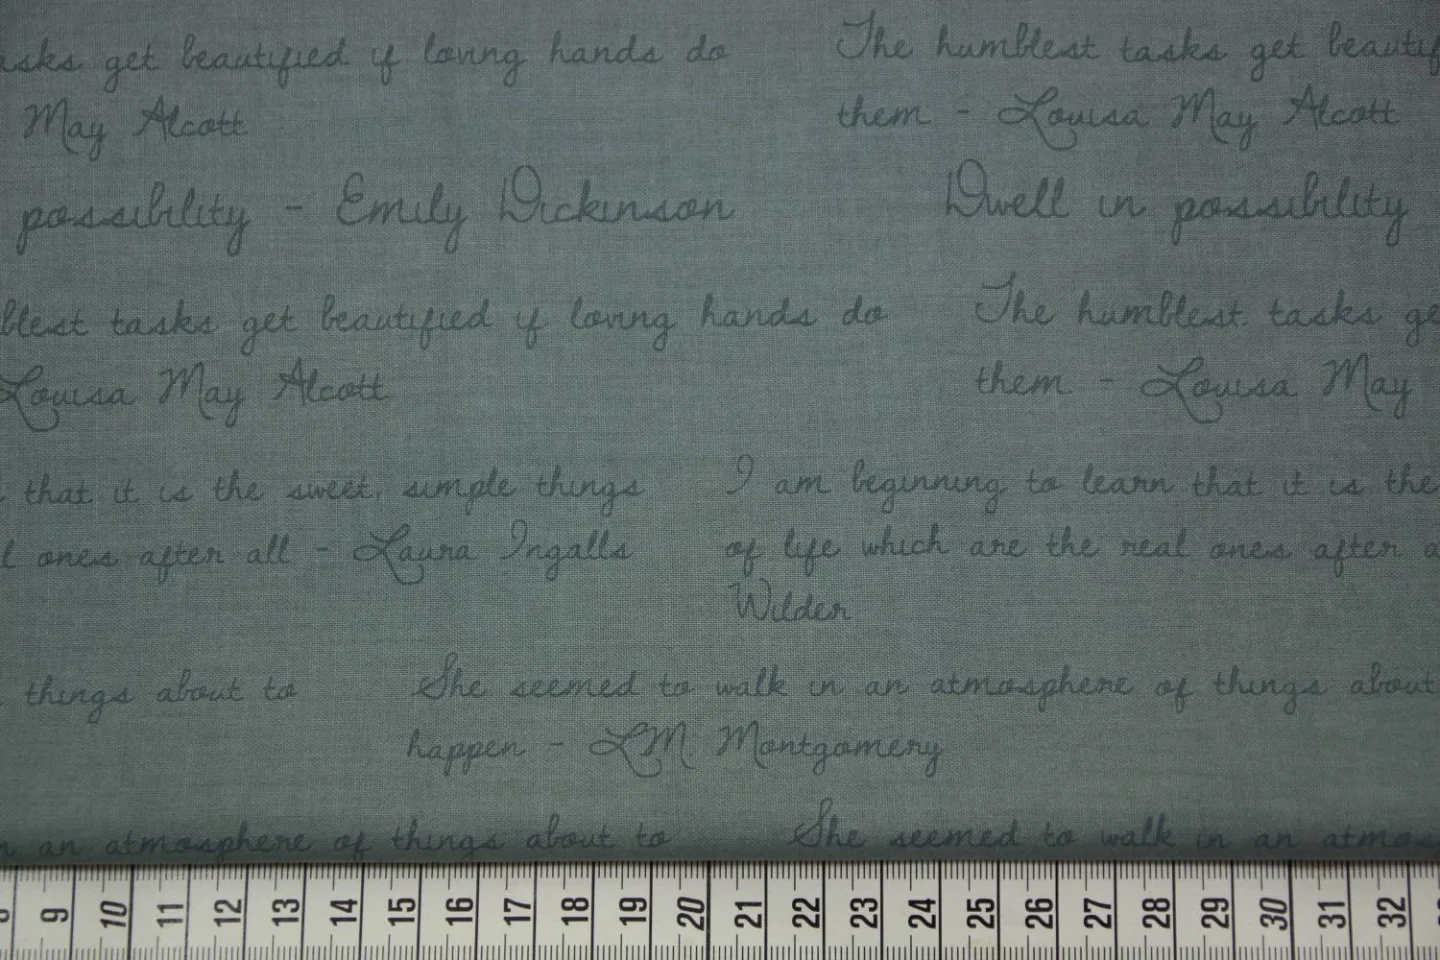 asks get beautified if loving hands do The humblest tasks get beautif
May Alcott them - Louisa May Alcott
possibility - Emily Dickinson Dwell in possibility
blest tasks get beautified if loving hands do The humblest tasks ge
Louisa May Alcott them - Louisa May
that it is the sweet, simple things I am beginning to learn that it is the
l ones after all - Laura Ingalls of life which are the real ones after a
Wilder
things about to She seemed to walk in an atmosphere of things about
happen - LM Montgomery
n an atmosphere of things about to She seemed to walk in an atmos
9 10 11 12 13 14 15 16 17 18 19 20 21 22 23 24 25 26 27 28 29 30 31 32